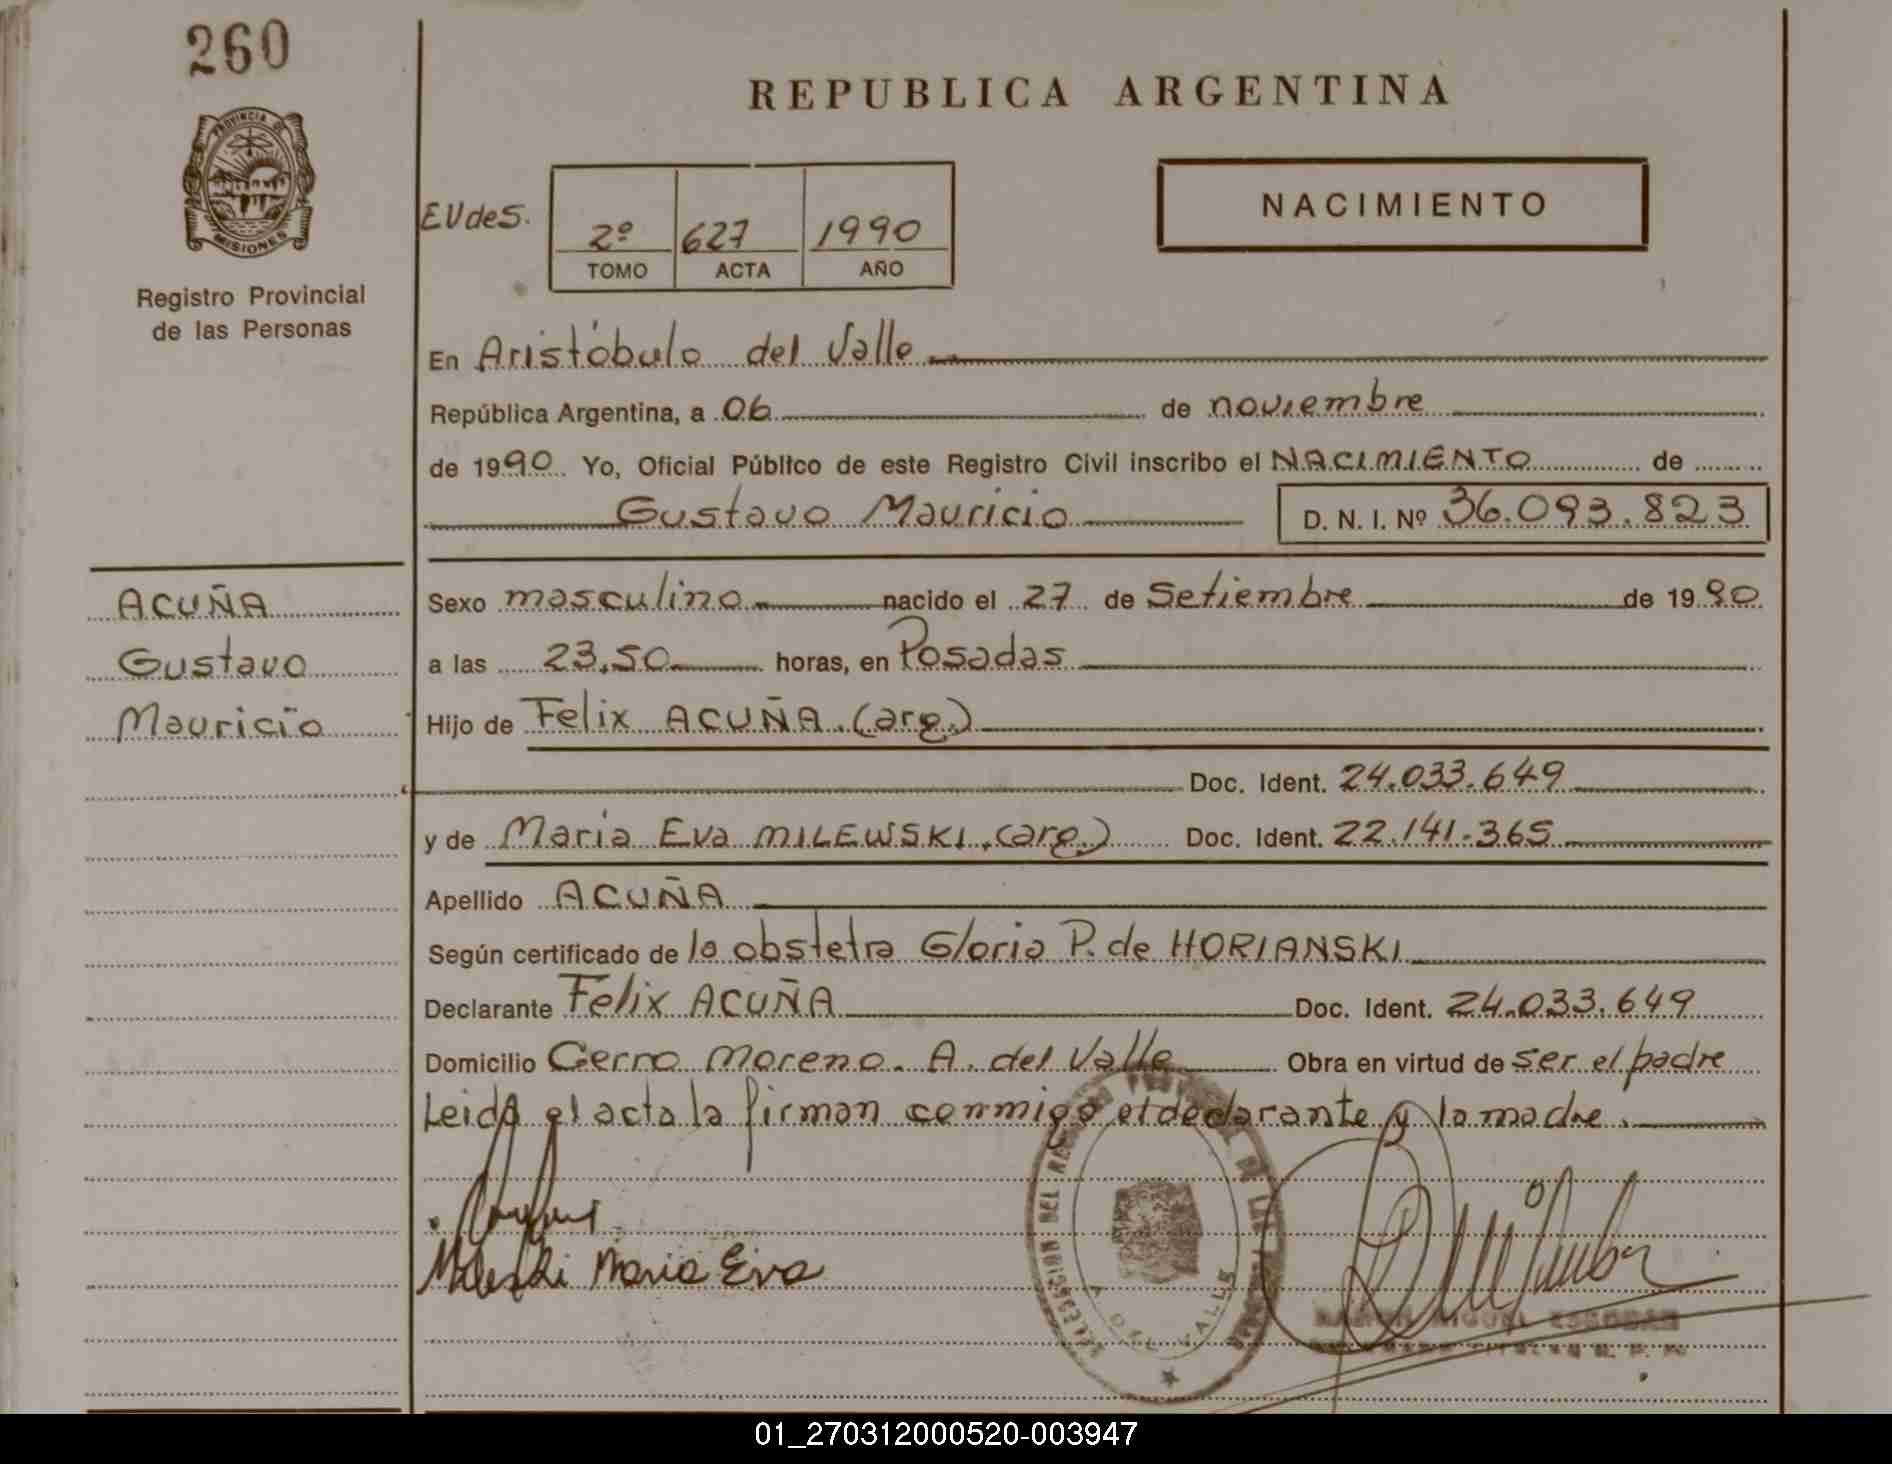 260
REPUBLICA ARGENTINA
PROVINCIA DE
MISIONES
Registro Provincial
de las Personas
EVdeS.
2º 627 1990
TOMO ACTA AÑO
NACIMIENTO
En Aristóbulo del Valle
República Argentina, a 06 de noviembre
de 1990 Yo, Oficial Público de este Registro Civil inscribo el NACIMIENTO de
Gustavo Mauricio D. N. I. Nº 36.093.823
ACUÑA
Gustavo
Mauricio
Sexo masculino nacido el 27 de Setiembre de 1990
a las 23.50 horas, en Posadas
Hijo de Felix ACUÑA.(arg.)
Doc. Ident. 24.033.649
y de Maria Eva MILEWSKI.(arg.) Doc. Ident. 22.141.365
Apellido ACUÑA
Según certificado de la obstetra Gloria P. de HORIANSKI
Declarante Felix ACUÑA Doc. Ident. 24.033.649
Domicilio Cerro Moreno. A. del Valle Obra en virtud de ser el padre
Leida el acta la firman conmigo el declarante y la madre.
Maria Eva
DELEGACION DEL REGISTRO PROVINCIAL DE LAS PERSONAS
A. DEL VALLE
RAMON MIGUEL ESCOBAR
01_270312000520-003947